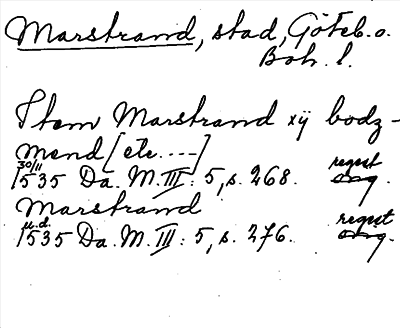 Marstrand, stad, Göteb. o.
Boh. l.
Item Marstrand xij bodz-
mend [etc. ----]
30/11 regest
1535 Da. M. III: 5, s. 268. orig.
Marstrand
u.d. regest
1535 Da. M. III: 5, s. 276. orig.